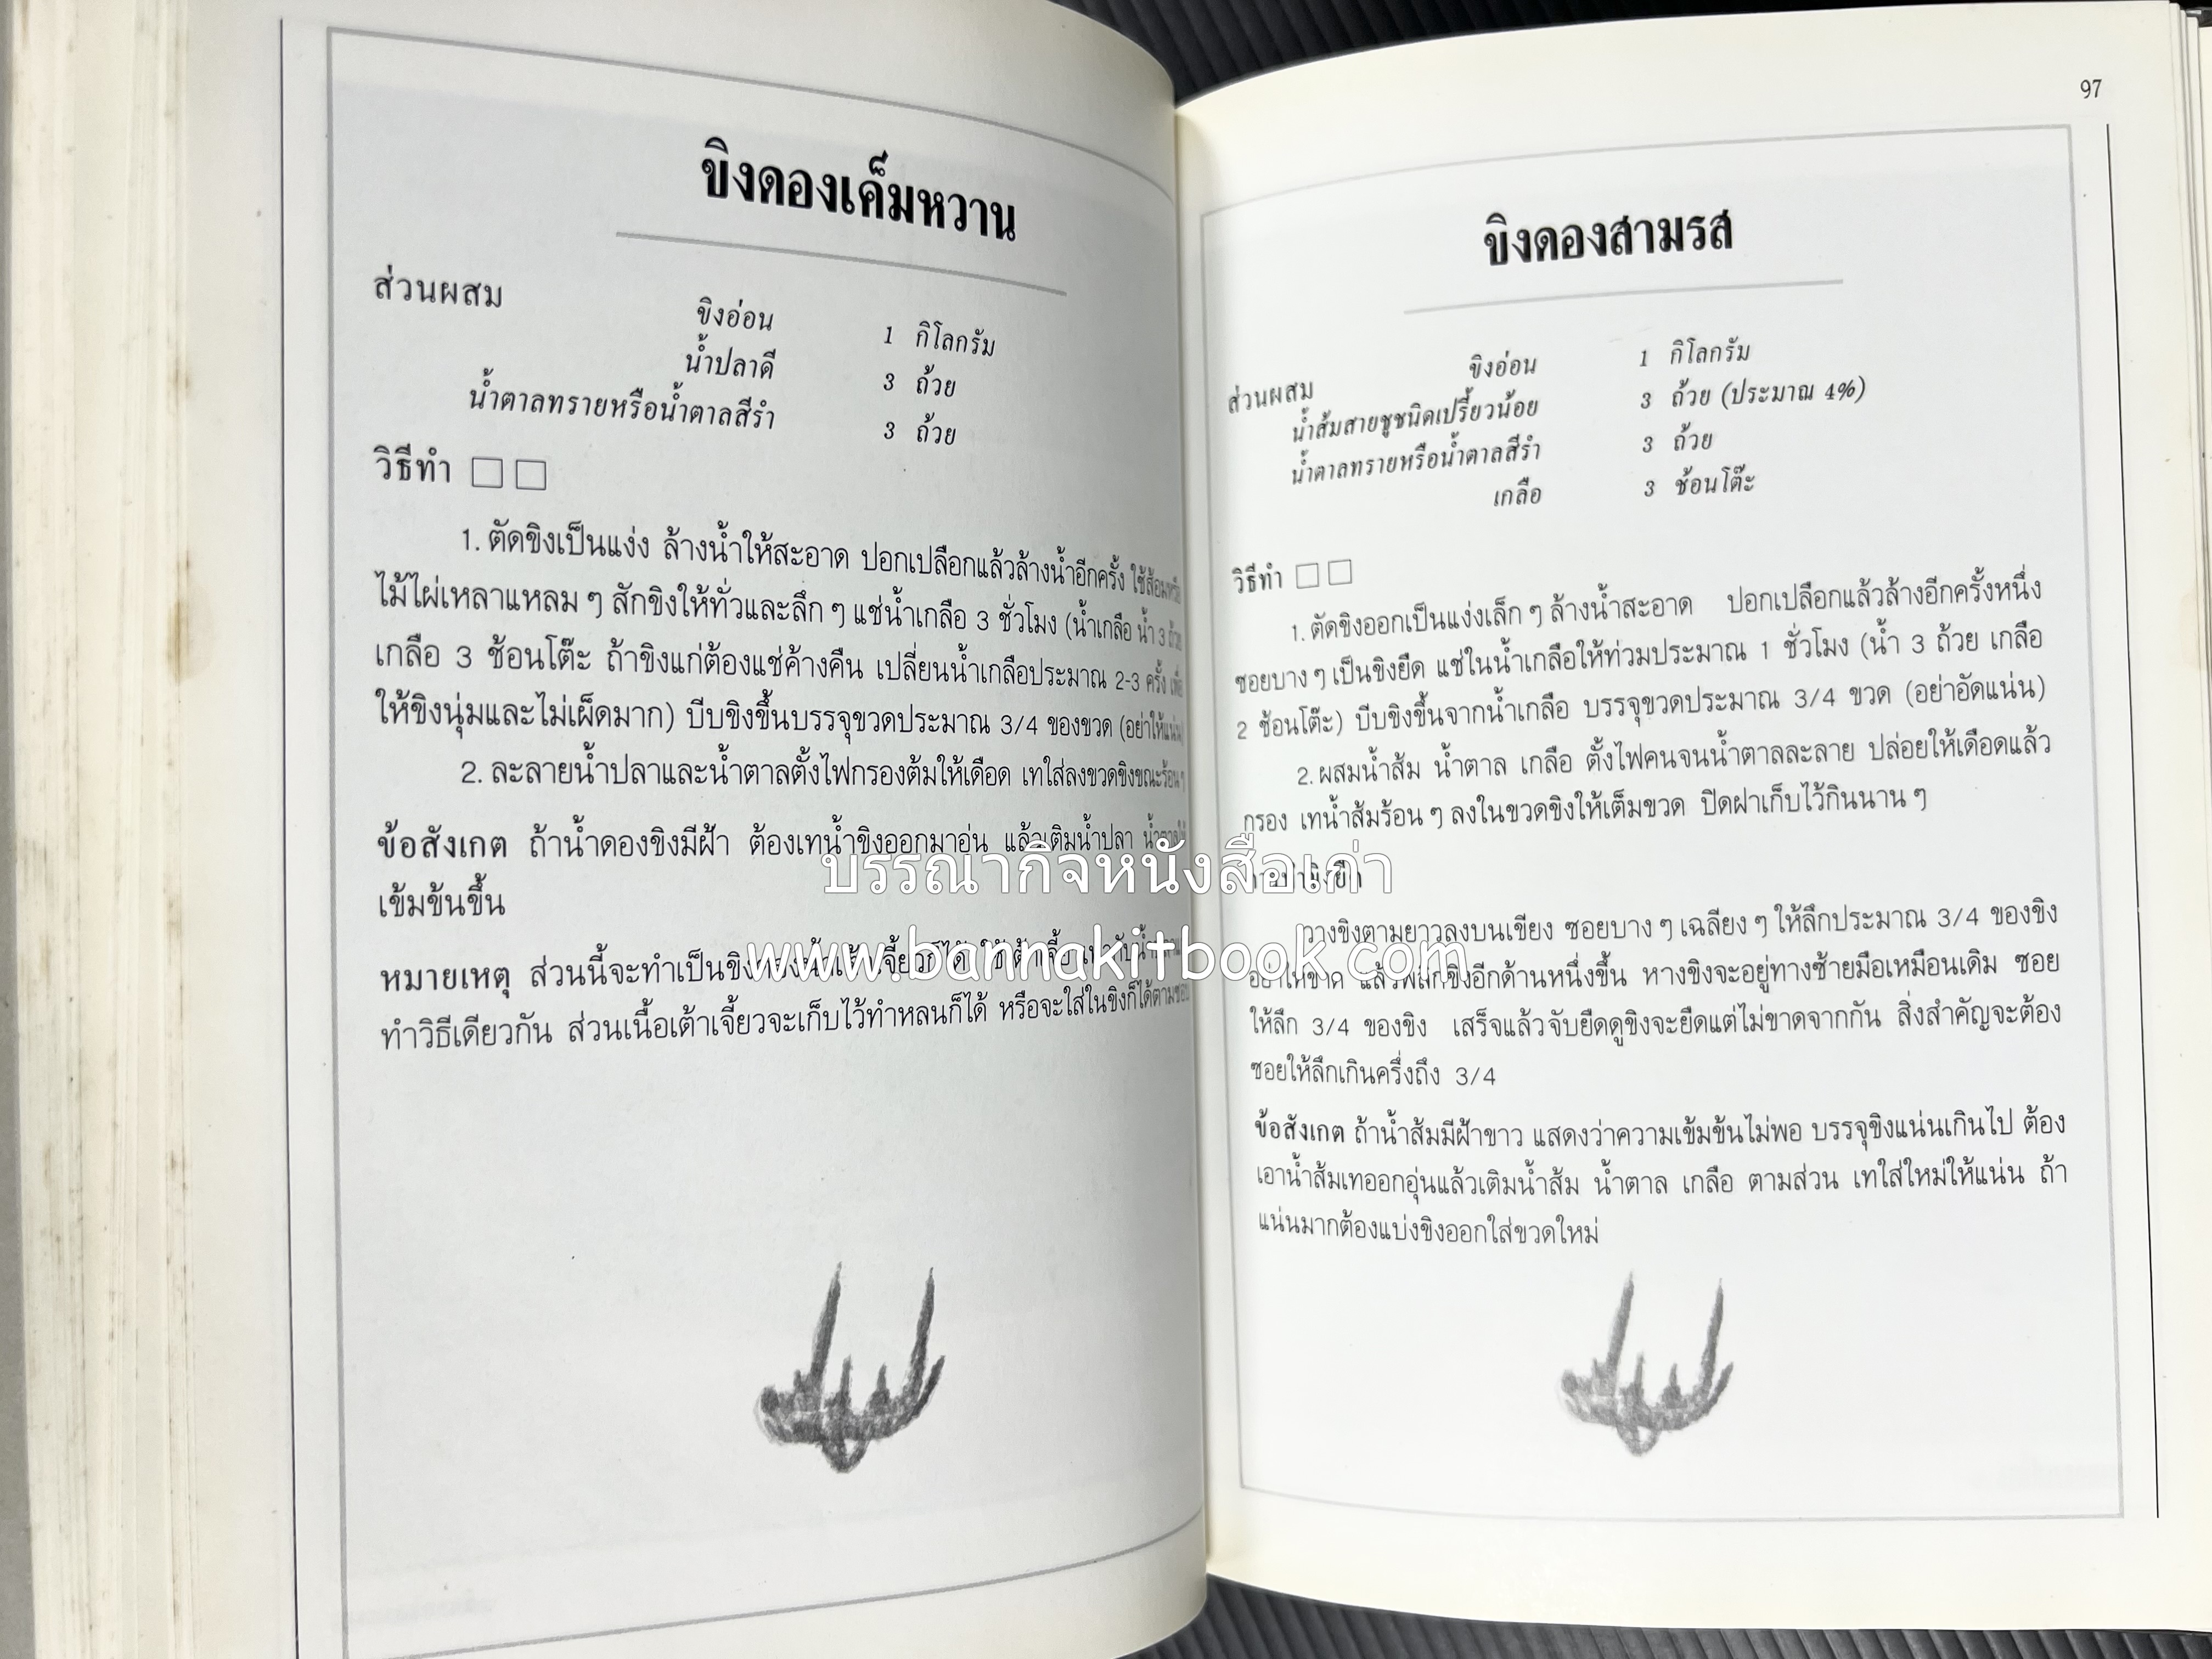 ขิงดองเค็มหวาน
ส่วนผสม
ขิงอ่อน 1 กิโลกรัม
น้ำปลาดี 3 ถ้วย
น้ำตาลทรายหรือน้ำตาลสีรำ 3 ถ้วย
วิธีทำ
1. ตัดขิงเป็นแง่ง ล้างน้ำให้สะอาด ปอกเปลือกแล้วล้างน้ำอีกครั้ง ใช้ส้อมหรือ
ไม้ไผ่เหลาแหลม ๆ สักขิงให้ทั่วและลึก ๆ แช่น้ำเกลือ 3 ชั่วโมง (น้ำเกลือ น้ำ 3 ถ้วย
เกลือ 3 ช้อนโต๊ะ ถ้าขิงแก่ต้องแช่ค้างคืน เปลี่ยนน้ำเกลือประมาณ 2-3 ครั้ง เพื่อ
ให้ขิงนุ่มและไม่เผ็ดมาก) บีบขิงขึ้นบรรจุขวดประมาณ 3/4 ของขวด (อย่าให้แน่น)
2. ละลายน้ำปลาและน้ำตาลตั้งไฟกรองต้มให้เดือด เทใส่ลงขวดขิงขณะร้อน ๆ
ข้อสังเกต ถ้าน้ำดองขิงมีฝ้า ต้องเทน้ำขิงออกมาอุ่น แล้วเติมน้ำปลา
เข้มข้นขึ้น
หมายเหตุ ส่วนนี้จะทำเป็นขิงดองน้ำเต้าเจี้ยวก็ได้
ทำวิธีเดียวกัน ส่วนเนื้อเต้าเจี้ยวจะเก็บไว้ทำหลนก็ได้ หรือจะใส่ในขิงก็ได้ตามชอบ
97
ขิงดองสามรส
ส่วนผสม
ขิงอ่อน 1 กิโลกรัม
น้ำส้มสายชูชนิดเปรี้ยวน้อย 3 ถ้วย (ประมาณ 4%)
น้ำตาลทรายหรือน้ำตาลสีรำ 3 ถ้วย
เกลือ 3 ช้อนโต๊ะ
วิธีทำ
1. ตัดขิงออกเป็นแง่งเล็ก ๆ ล้างน้ำสะอาด ปอกเปลือกแล้วล้างอีกครั้งหนึ่ง
ซอยบาง ๆ เป็นขิงยืด แช่ในน้ำเกลือให้ท่วมประมาณ 1 ชั่วโมง (น้ำ 3 ถ้วย เกลือ
2 ช้อนโต๊ะ) บีบขิงขึ้นจากน้ำเกลือ บรรจุขวดประมาณ 3/4 ขวด (อย่าอัดแน่น)
2. ผสมน้ำส้ม น้ำตาล เกลือ ตั้งไฟคนจนน้ำตาลละลาย ปล่อยให้เดือดแล้ว
กรอง เทน้ำส้มร้อน ๆ ลงในขวดขิงให้เต็มขวด ปิดฝาเก็บไว้กินนาน ๆ
วางขิงตามยาวลงบนเขียง ซอยบาง ๆ เฉลียง ๆ ให้ลึกประมาณ 3/4 ของขิง
อย่าให้ขาด แล้วพลิกขิงอีกด้านหนึ่งขึ้น หางขิงจะอยู่ทางซ้ายมือเหมือนเดิม ซอย
ให้ลึก 3/4 ของขิง เสร็จแล้วจับยืดดูขิงจะยืดแต่ไม่ขาดจากกัน สิ่งสำคัญจะต้อง
ซอยให้ลึกเกินครึ่งถึง 3/4
ข้อสังเกต ถ้าน้ำส้มมีฝ้าขาว แสดงว่าความเข้มข้นไม่พอ บรรจุขิงแน่นเกินไป ต้อง
เอาน้ำส้มเทออกอุ่นแล้วเติมน้ำส้ม น้ำตาล เกลือ ตามส่วน เทใส่ใหม่ให้แน่น ถ้า
แน่นมากต้องแบ่งขิงออกใส่ขวดใหม่
บรรณากิจหนังสือเก่า
www.bannakitbook.com